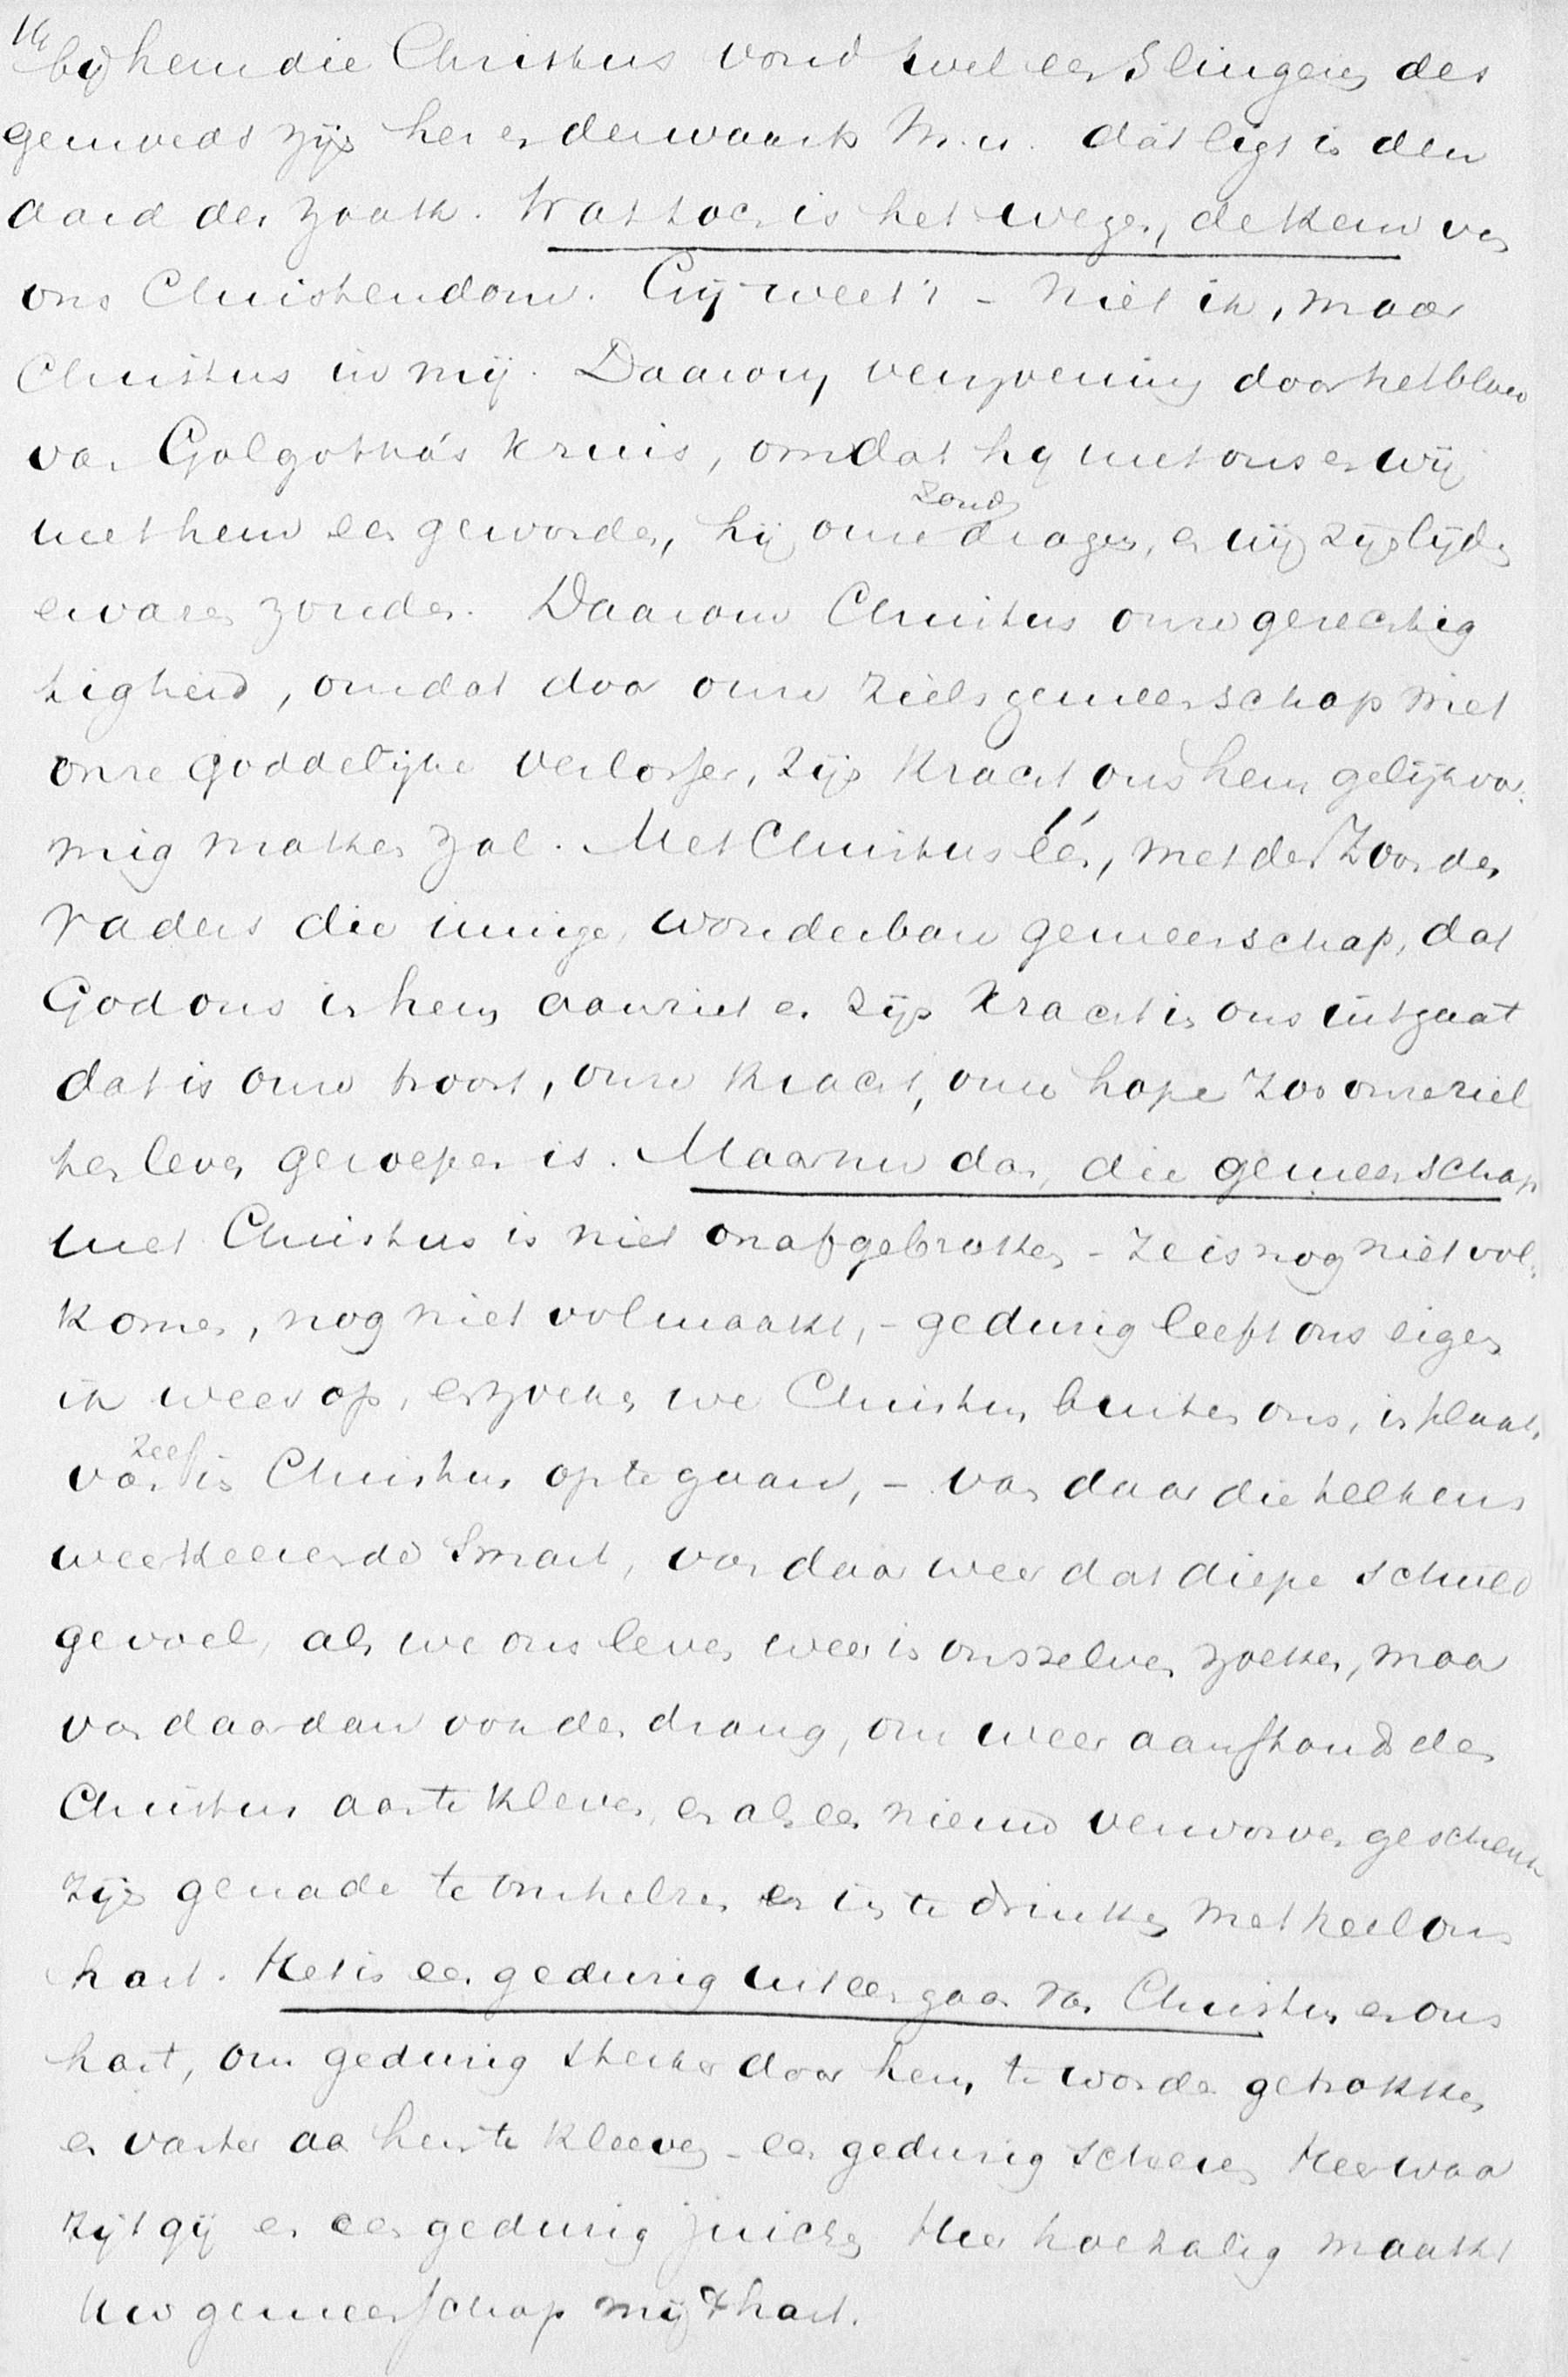 bij hem die Christus vond wel een Slingeren des
gemoeds zijn her en derwaarts M.n. dat ligt in den
aard der zaak. Wat toch is het wezen, de Kern van
ons Christendom. Gij weet 't - Niet ik, maar
Christus in mij. Daarom verzoening door het bloed
van Golgotha's Kruis, omdat hij met ons en wij
met hem een geworden, hij onze zonde dragen, en wij zijn lijden
ervaren zouden. Daarom Christus onze gerechtig
tigheid, omdat door onze zielsgemeenschap met
onze goddelijke verlosser, zijn Kracht ons hem gelijkvor:
mig maken zal. Met Christus één, met den Zoon des
Vaders die innige, wonderbare gemeenschap, dat
God ons in hem aanziet en zijn Kracht in ons uitgaat
dat is onze troost, onze Kracht, onze hope zoo onze ziel
ten leven geroepen is. Maar nu dan, die gemeenschap
met Christus is niet onafgebroken - ze is nog niet vol:
komen, nog niet volmaakt, - gedurig leeft ons eigen
ik weer op, en zoeken we Christus buiten ons, in plaats
van zelf in Christus op te gaan, - van daar die telkens
weerkeerende Smart, van daar weer dat diepe schuld
gevoel, als we ons leven weer in onszelven zoeken, maar
van daar dan ook den drang, om weer aanhoudend den
Christus aan te kleven, en als een nieuw verworven geschenk
zijn genade te omhelzen en in te drinken met heel ons
hart. Het is een gedurig uiteengaan van Christus en ons
hart, om gedurig sterker door hem te worden getrokken
en vaster aan hem te kleeven - een gedurig schreien Heer waar
zijt gij en een gedurig juichen Heer hoe zalig maakt
Uw gemeenschap mij 't hart.